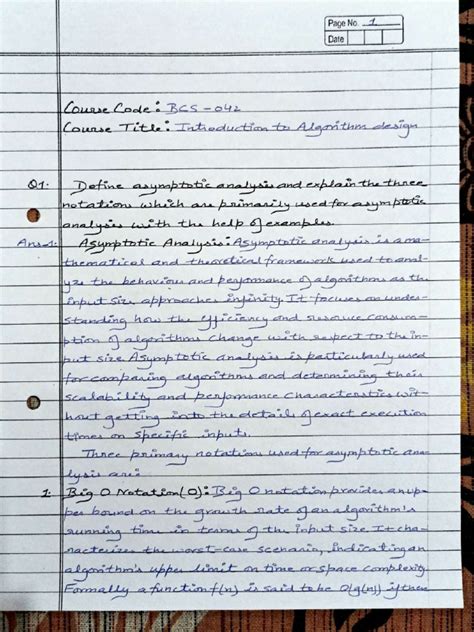 Page No. 1
Date
Course Code: BCS-042
Course Title: Introduction to Algorithm design
Q1. Define asymptotic analysis and explain the three
notations which are primarily used for asymptotic
analysis with the help of examples.
Ans1. Asymptotic Analysis: Asymptotic analysis is a ma-
thematical and theoretical framework used to anal-
yze the behaviour and performance of algorithms as the
input size approaches infinity. It focuses on under-
standing how the efficiency and resource consum-
ption of algorithms change with respect to the in-
put size Asymptotic analysis is particularly used
for comparing algorithms and determining their
scalability and performance characteristics wit-
hout getting into the details of exact execution
times on specific inputs.
Three primary notations used for asymptotic ana-
lysis are:
1. Big O Notation(O): Big O notation provides an up-
per bound on the growth rate of an algorithm's
running time in terms of the input size. It cha-
racterizes the worst-case scenario, indicating an
algorithm's upper limit on time or space complexity
Formally a function f(n) is said to be O(g(n)) if there